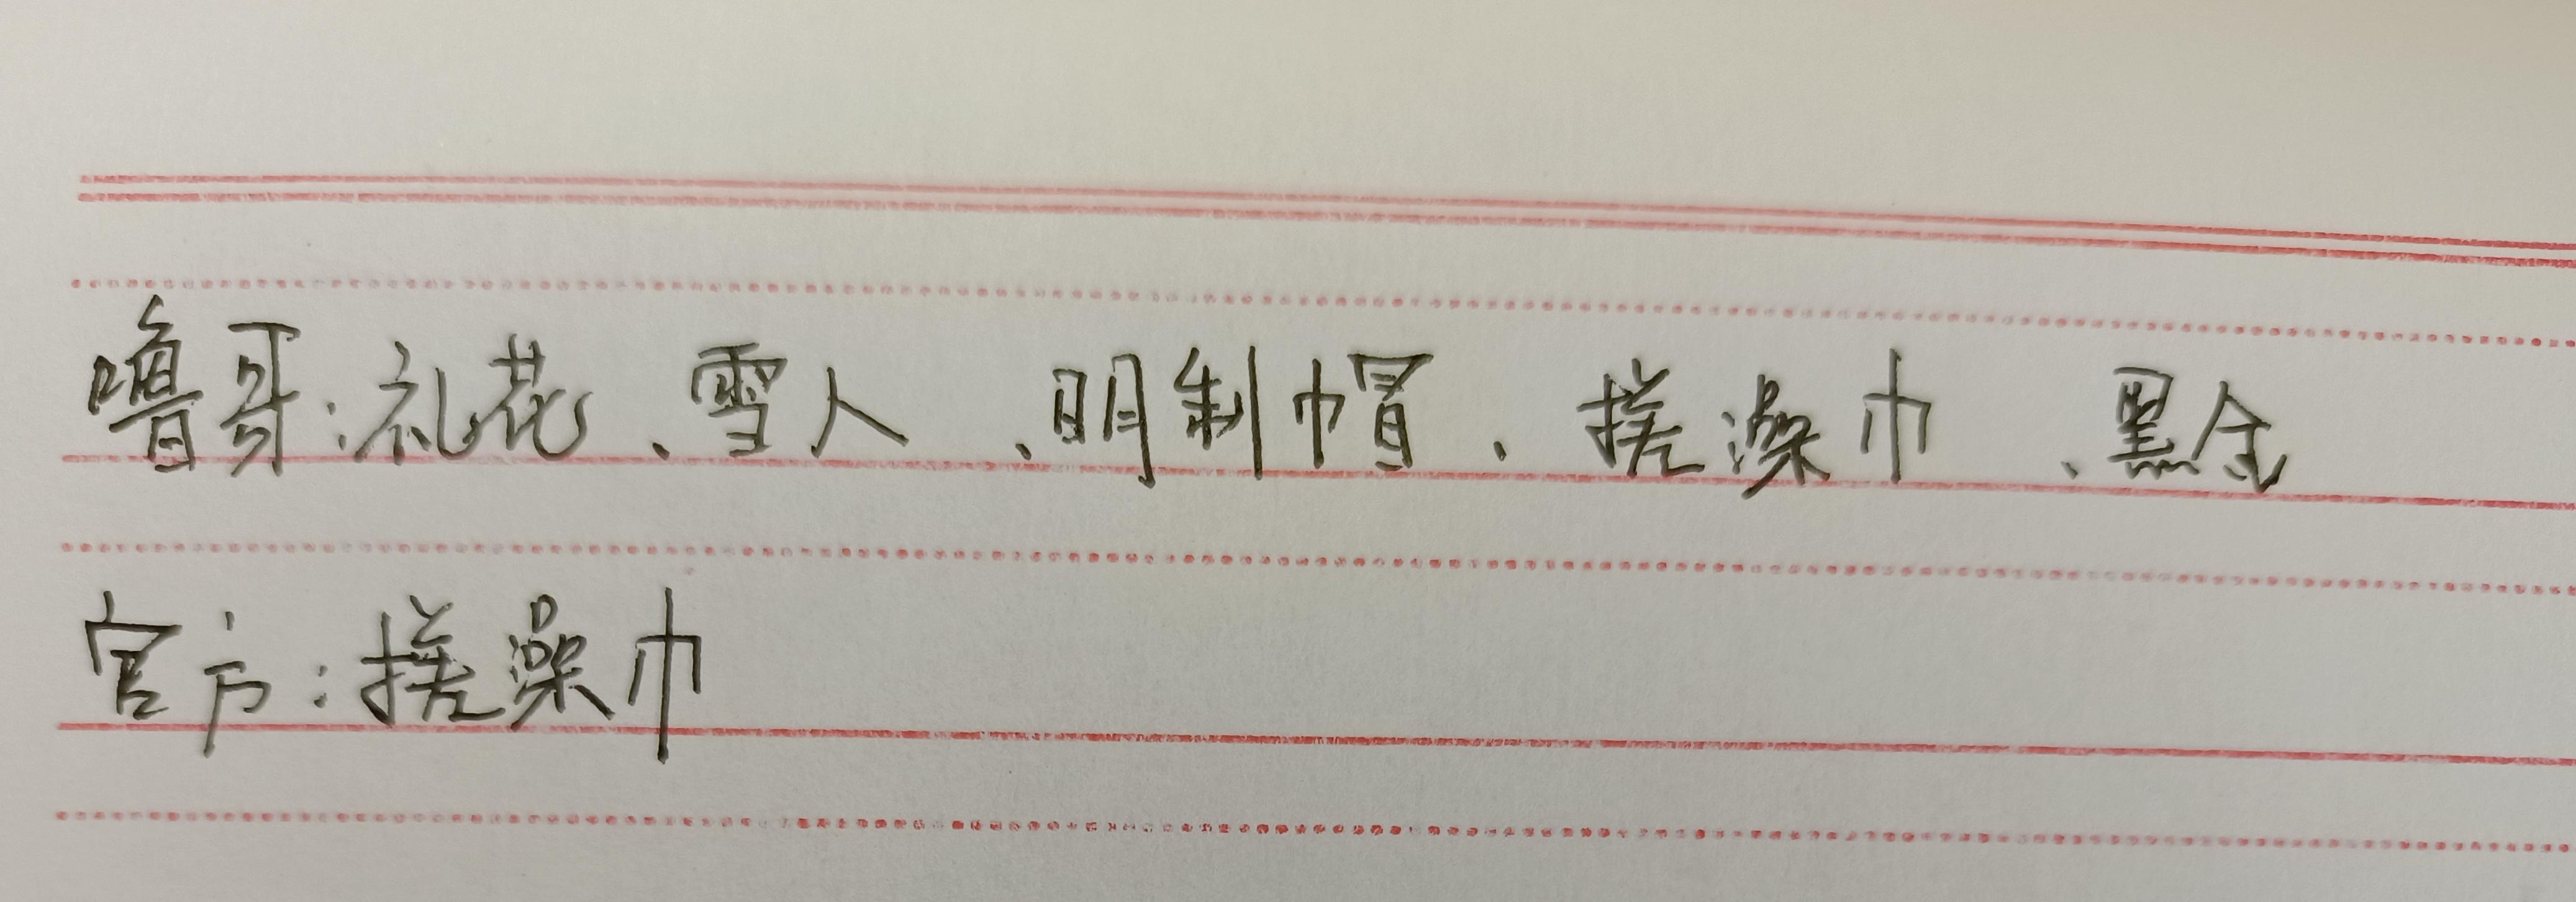 噜哥:礼花、雪人、明制帽、搓澡巾、黑金
官方:搓澡巾